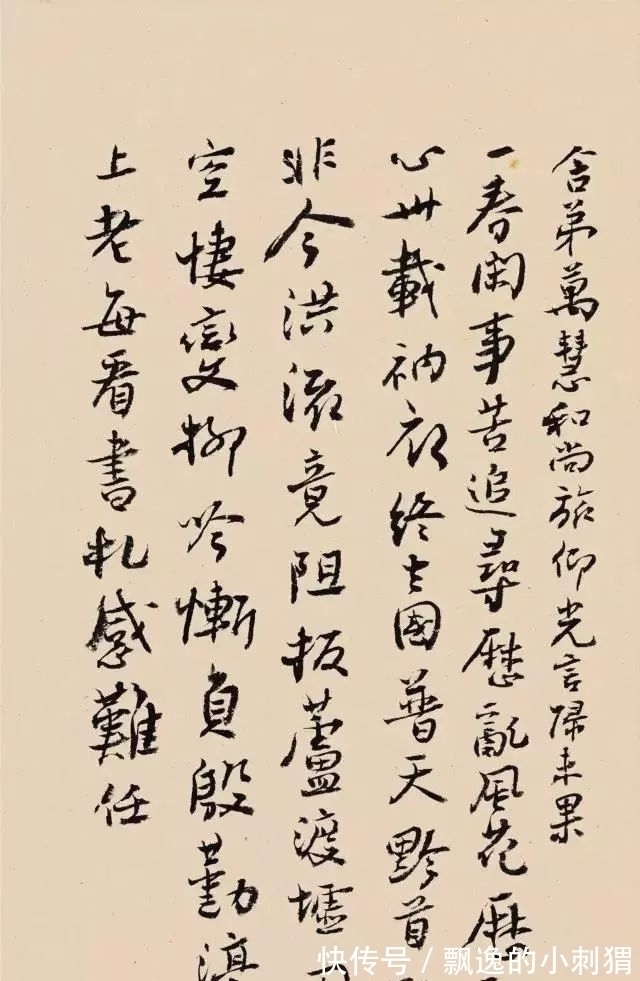 舍弟萬慧和尚旅仰光言歸未果
一春閑事苦追尋歷亂風花歷
心卅載衲衣終去國普天黔首
非今洪流竟阻扳蘆渡壚
空悽變柳吟慚負殷勤滇
上老每看書札感難任
快传号/飘逸的小刺猬